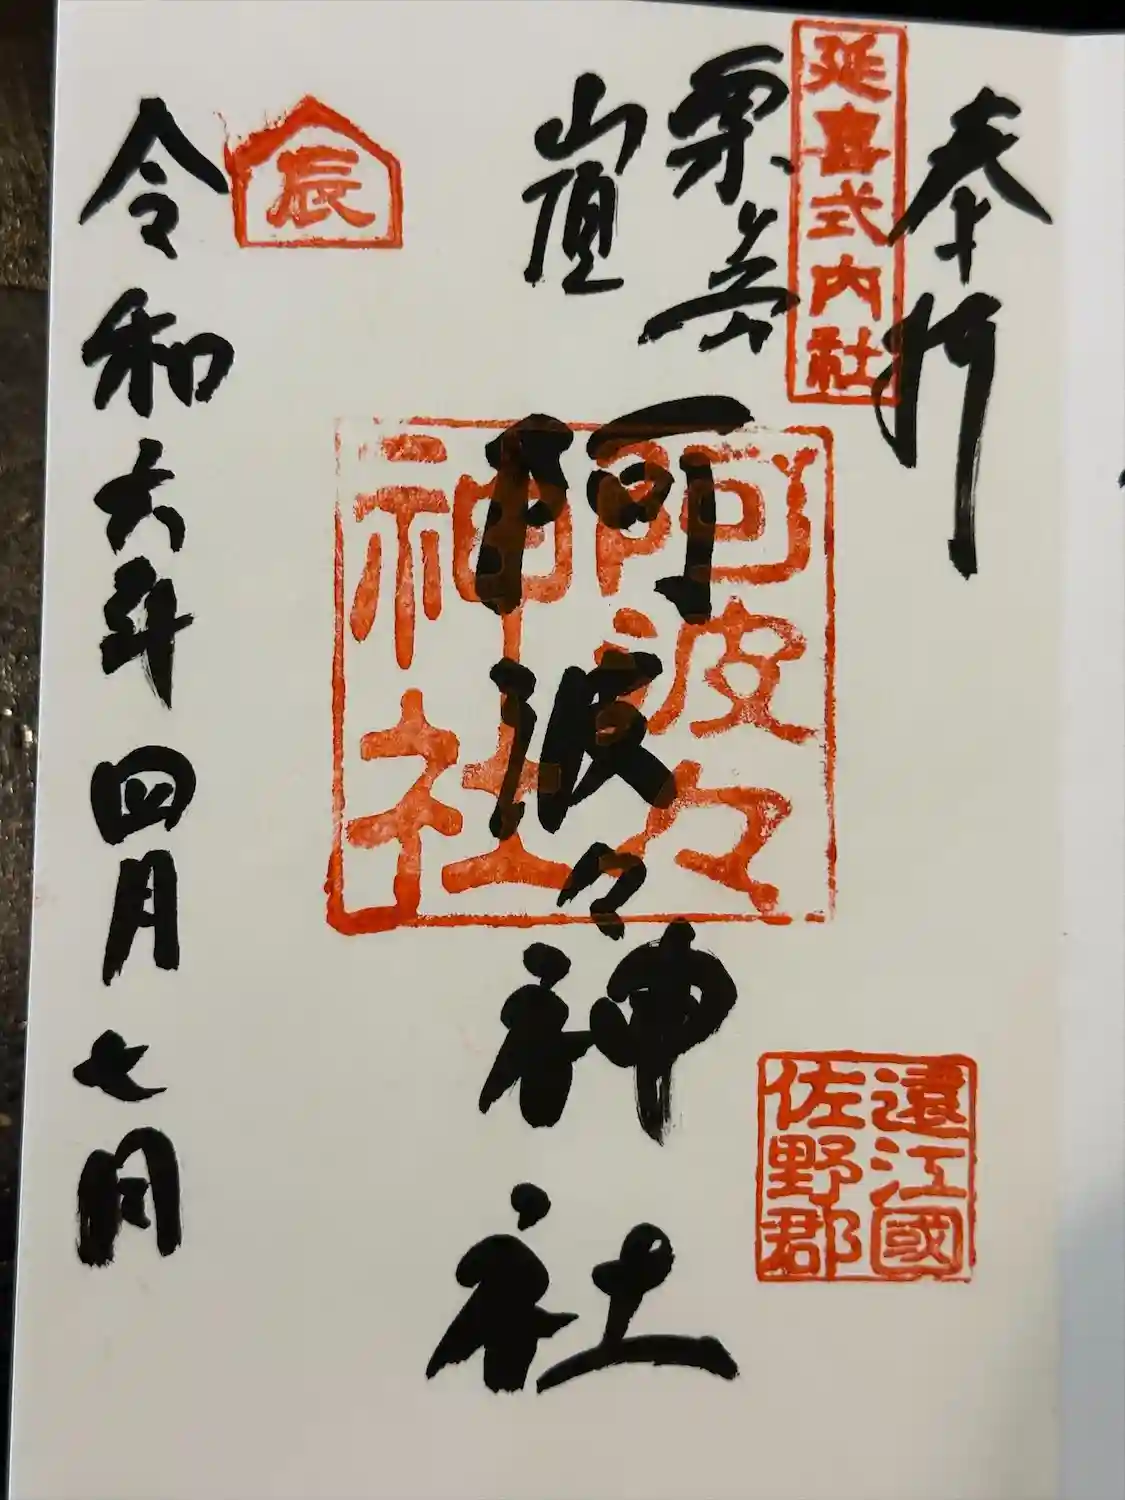 奉拝
延喜式内社
粟岳
山頂
阿波々神社
阿波々
神社
遠江國
佐野郡
辰
令和六年四月七日